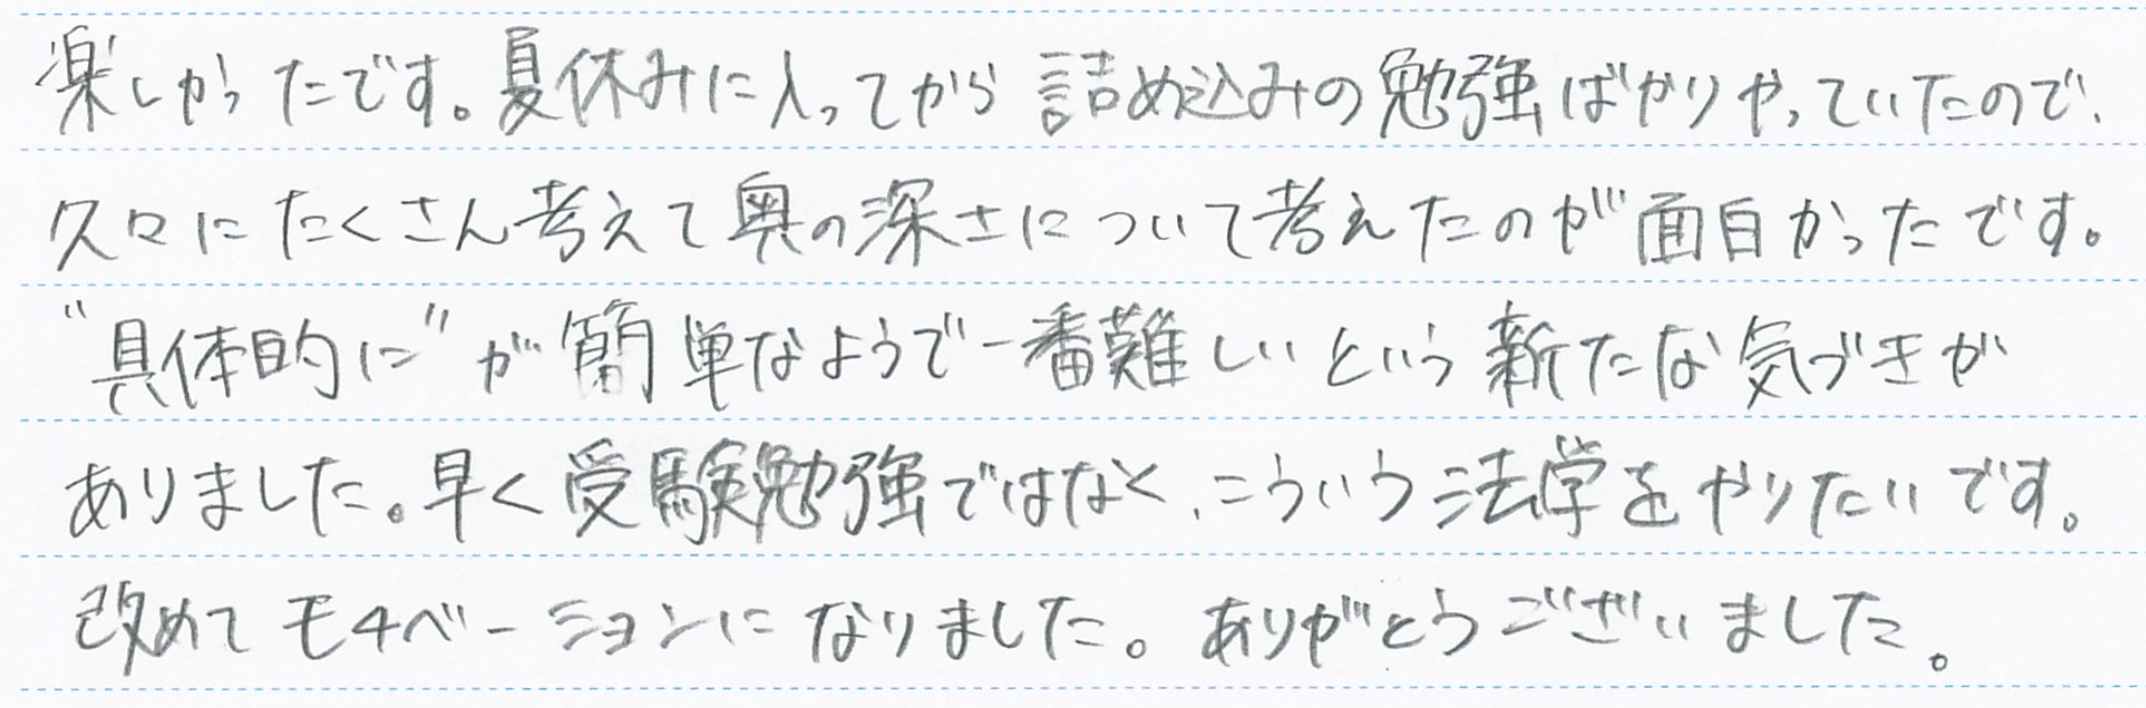 楽しかったです。夏休みに入ってから詰め込みの勉強ばかりやっていたので、
久々にたくさん考えて奥の深さについて考えたのが面白かったです。
"具体的に"が簡単なようで一番難しいという新たな気づきが
ありました。早く受験勉強ではなく、こういう法学をやりたいです。
改めてモチベーションになりました。ありがとうございました。